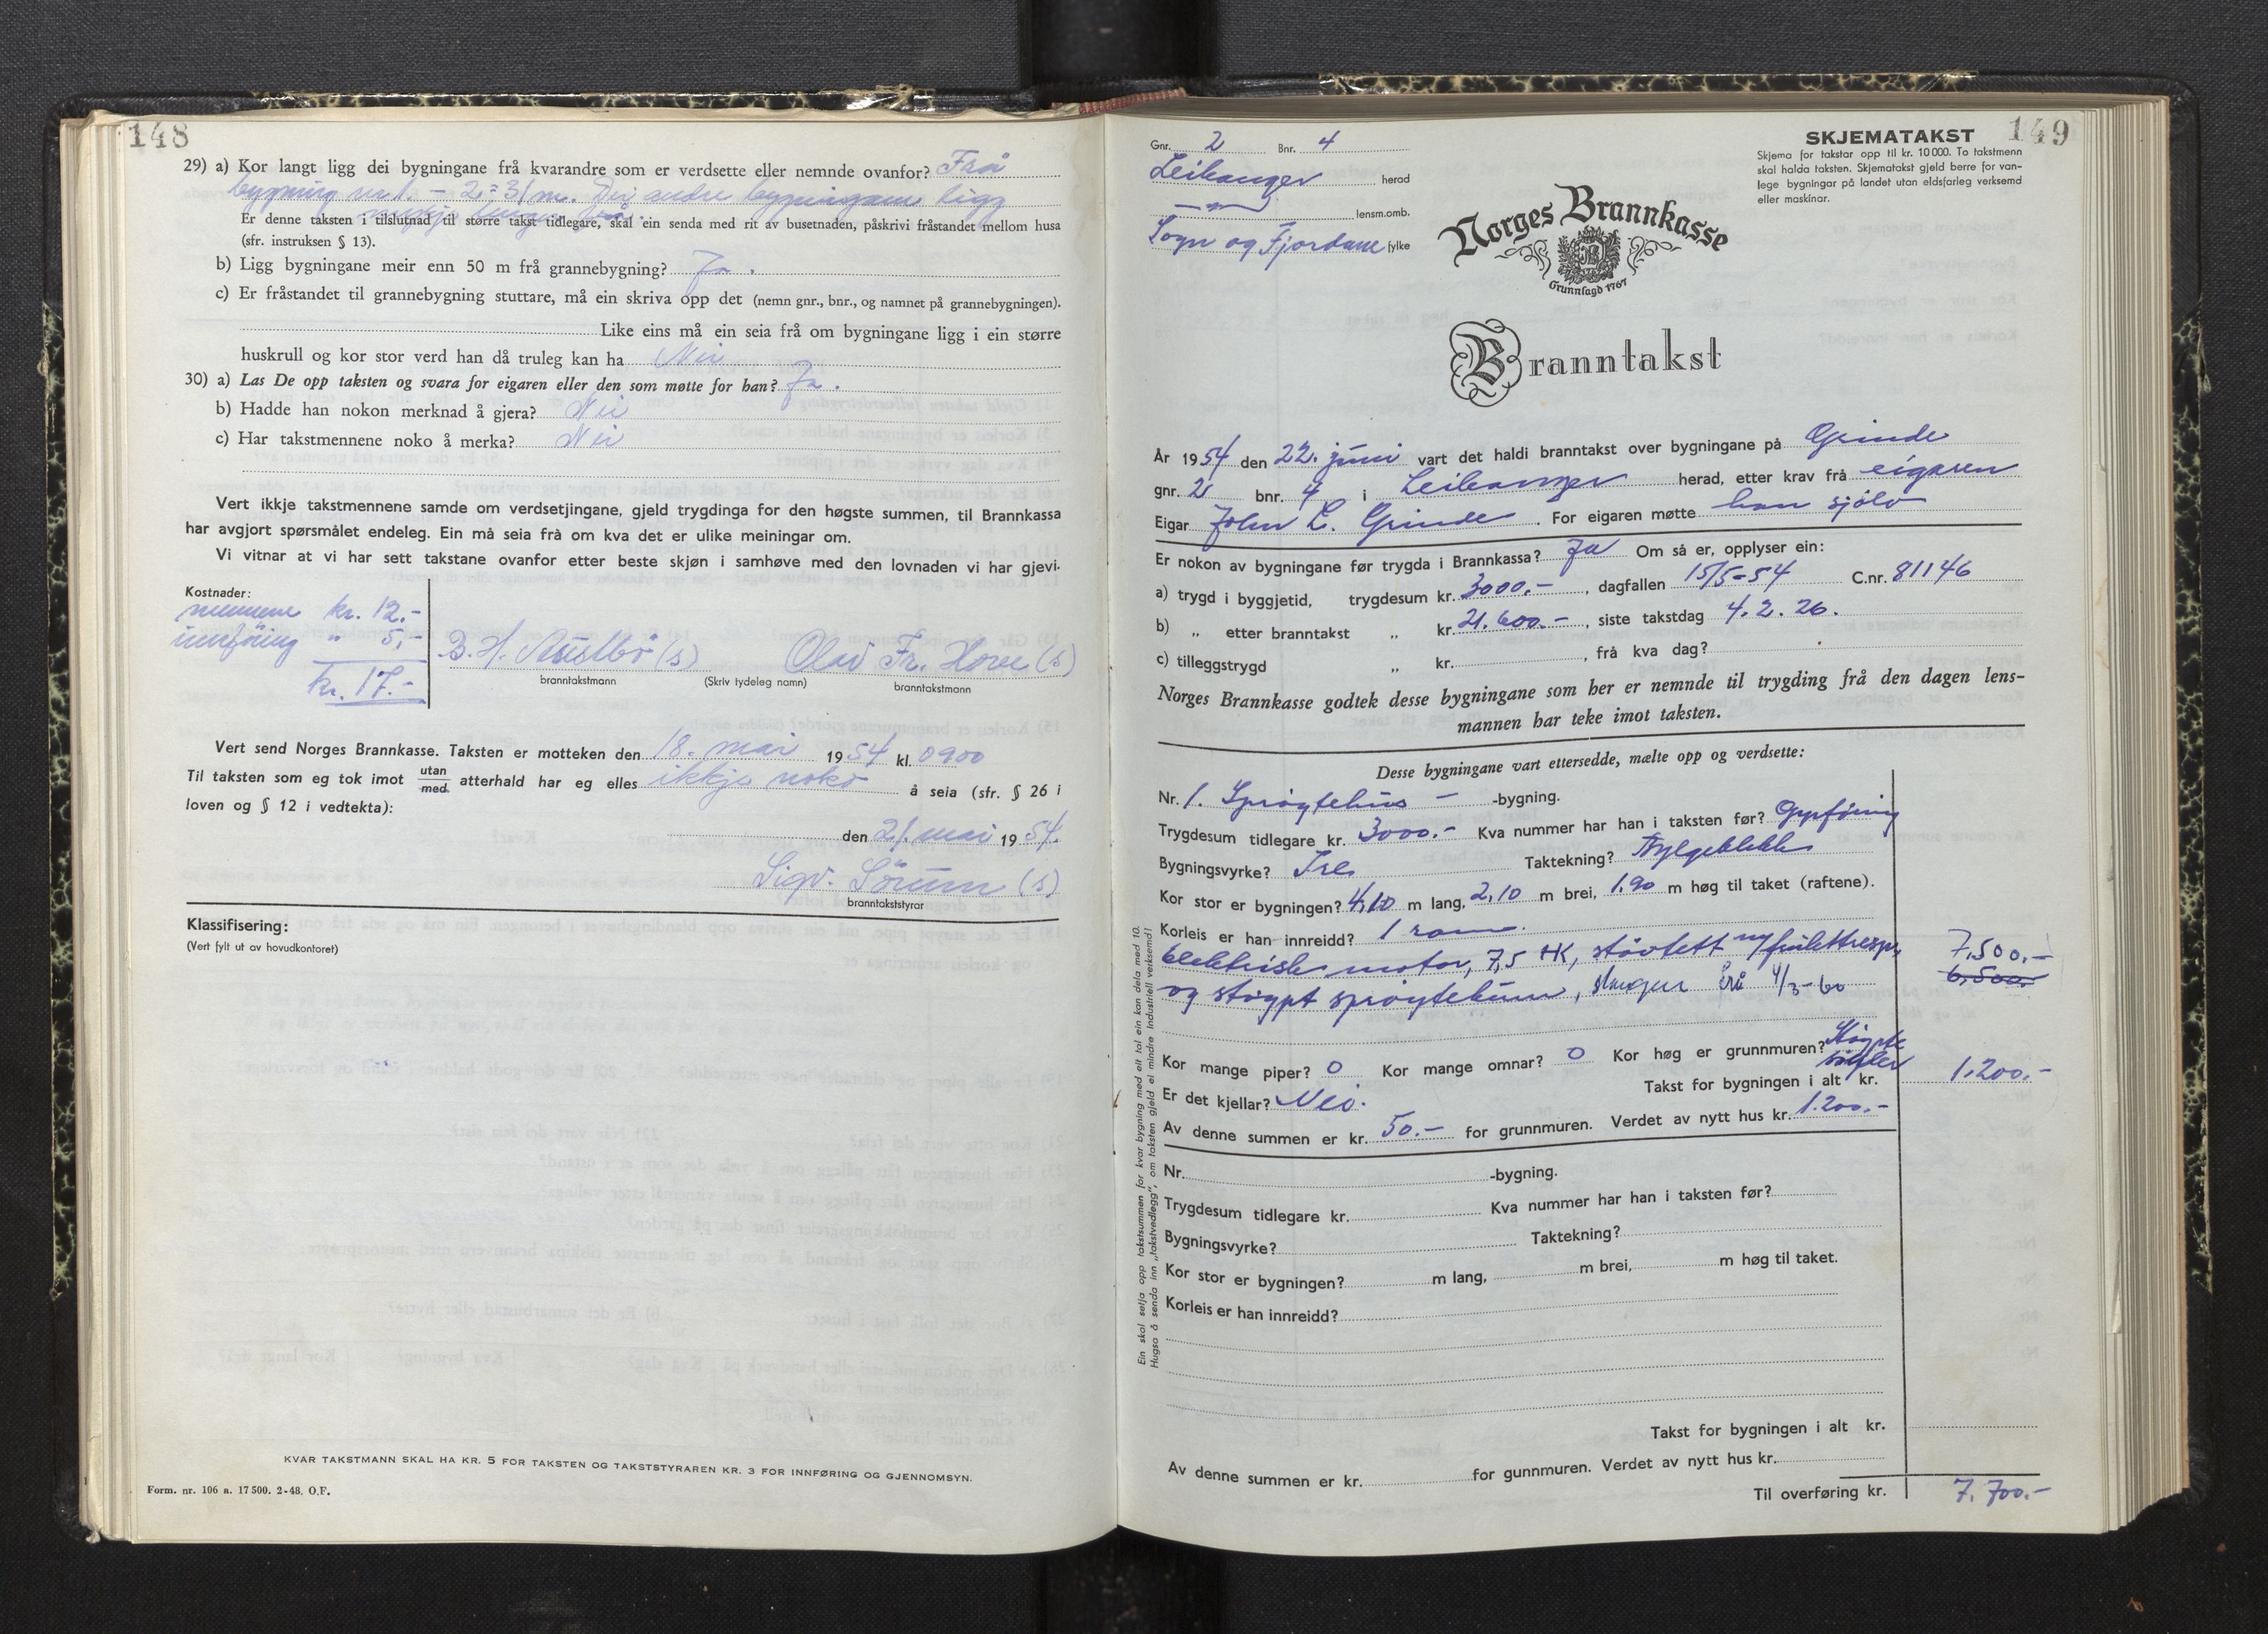 148
29) a) Kor langt ligg dei bygningane frå kvarandre som er verdsette eller nemnde ovanfor? Frå
bygning nr. 1. – 2 = 31 m. Dei andre bygningane ligg
Er denne taksten i tilslutnad til større takst tidlegare, skal ein senda med rit av busetnaden, påskrivi fråstandet mellom husa
(sfr. instruksen § 13).
b) Ligg bygningane meir enn 50 m frå grannebygning? Ja.
c) Er fråstandet til grannebygning stuttare, må ein skriva opp det (nemn gnr., bnr., og namnet på grannebygningen).
Like eins må ein seia frå om bygningane ligg i ein større
huskrull og kor stor verd han då truleg kan ha Nei
30) a) Las De opp taksten og svara for eigaren eller den som møtte for han? Ja.
b) Hadde han nokon merknad å gjera? Nei
c) Har takstmennene noko å merka? Nei
Vert ikkje takstmennene samde om verdsetjingane, gjeld trygdinga for den høgste summen, til Brannkassa
har avgjort spørsmålet endeleg. Ein må seia frå om kva det er ulike meiningar om.
Vi vitnar at vi har sett takstane ovanfor etter beste skjøn i samhøve med den lovnaden vi har gjevi.
Kostnader:
mennene kr. 12.-
innföring " 5,-
kr. 17.-
B. H. Austbö (s) Olav Fr. Hove (s)
branntakstmann (Skriv tydeleg namn) branntakstmann
Vert send Norges Brannkasse. Taksten er motteken den 18. mai 1954 kl. 0900
Til taksten som eg tok imot utan/med atterhald har eg elles ikkje noko å seia (sfr. § 26 i
loven og § 12 i vedtekta):
den 21. mai 1954.
Sigv. Sörum (s)
branntakststyrar
Klassifisering:
(Vert fylt ut av hovudkontoret)
KVAR TAKSTMANN SKAL HA KR. 5 FOR TAKSTEN OG TAKSTSTYRAREN KR. 3 FOR INNFØRING OG GJENNOMSYN.
Form. nr. 106 a. 17 500. 2-48. O.F.
149
Gnr. 2 Bnr. 4
Leikanger herad
lensm.omb.
Sogn og Fjordane fylke
SKJEMATAKST
Skjema for takstar opp til kr. 10 000. To takstmenn
skal halda taksten. Skjematakst gjeld berre for van-
lege bygningar på landet utan eldsfarleg verksemd
eller maskinar.
Norges Brannkasse
Grunnlagd 1767
Branntakst
År 1954 den 22. juni vart det haldi branntakst over bygningane på Grinde
gnr. 2 bnr. 4 i Leikanger herad, etter krav frå eigaren
Eigar John L. Grinde. For eigaren møtte han sjölv
Er nokon av bygningane før trygda i Brannkassa? Ja Om så er, opplyser ein:
a) trygd i byggjetid, trygdesum kr. 3000.-, dagfallen 15/5-54 C.nr. 81146
b) „ etter branntakst „ kr. 21.600.-, siste takstdag 4.2.26.
c) tilleggstrygd „ kr. , frå kva dag?
Norges Brannkasse godtek desse bygningane som her er nemnde til trygding frå den dagen lens-
mannen har teke imot taksten.
Desse bygningane vart ettersedde, mælte opp og verdsette:
Nr. 1. Sprøytehus – -bygning.
Trygdesum tidlegare kr. 3000.- Kva nummer har han i taksten før? Oppföring
Bygningsvyrke? Tre Taktekning? Bylgeblekk
Kor stor er bygningen? 4,10 m lang, 2,10 m brei, 1,90 m høg til taket (raftene).
Korleis er han innreidd? 1 rom.
elektrisk motor, 7,5 HK, stövtett
7,500.-
og støypt sprøytekum, slanger frå 4/3-60
6,500.-
Kor mange piper? 0 Kor mange omnar? 0 Kor høg er grunnmuren? Støypte
söyler
Er det kjellar? Nei. Takst for bygningen i alt kr. 1.200.-
Av denne summen er kr. 50.- for grunnmuren. Verdet av nytt hus kr. 1.200.-
Nr. -bygning.
Trygdesum tidlegare kr. Kva nummer har han i taksten før?
Bygningsvyrke? Taktekning?
Kor stor er bygningen? m lang, m brei, m høg til taket.
Korleis er han innreidd?
Takst for bygningen i alt kr.
Av denne summen er kr. for gunnmuren. Verdet av nytt hus kr.
Til overføring kr. 7.700.-
Ein skal setja opp takstsummen for kvar bygning med eit tal ein kan dela med 10.
Hugsa å senda inn „takstvedlegg", om taksten gjeld ei mindre industriell verksemd!